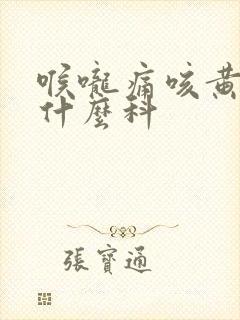 喉嚨痛咳黃
什麼科
張寶通